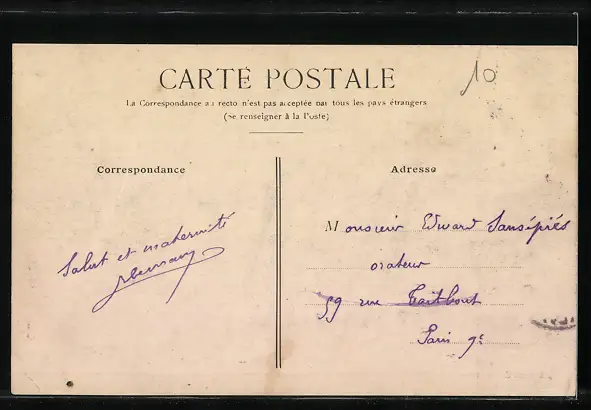 10
CARTE POSTALE
La Correspondance au recto n'est pas acceptée par tous les pays étrangers
(Se renseigner à la Poste)
Correspondance
Adresse
Salut et maternité
Monsieur Edward Sansépiés
orateur
59 rue Taitbout
Paris 9e